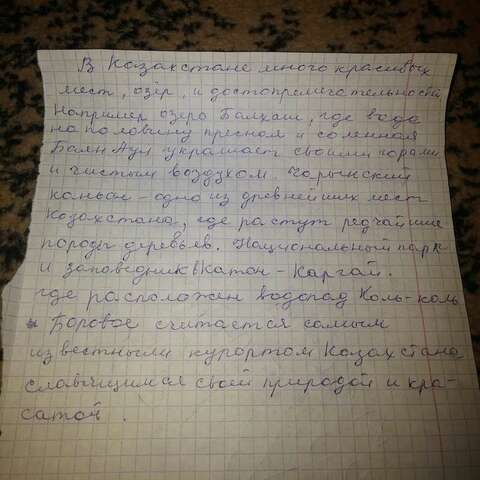 В Казахстане много красивых
мест, озёр, и достопримечательностей
Например озеро Балхаш, где вода
на половину пресная и соленная
Баян Аул украшает своими горами
и чистым воздухом. Чарынский
каньон - одно из древнейших мест
Казахстана, где растут редчайшие
породы деревьев. Национальный парк
и заповедник Катон - Каргай.
где расположен водопад Коль-коль
Боровое считается самым
известным курортом Казахстана
славящимся своей природой и кра-
сатой.